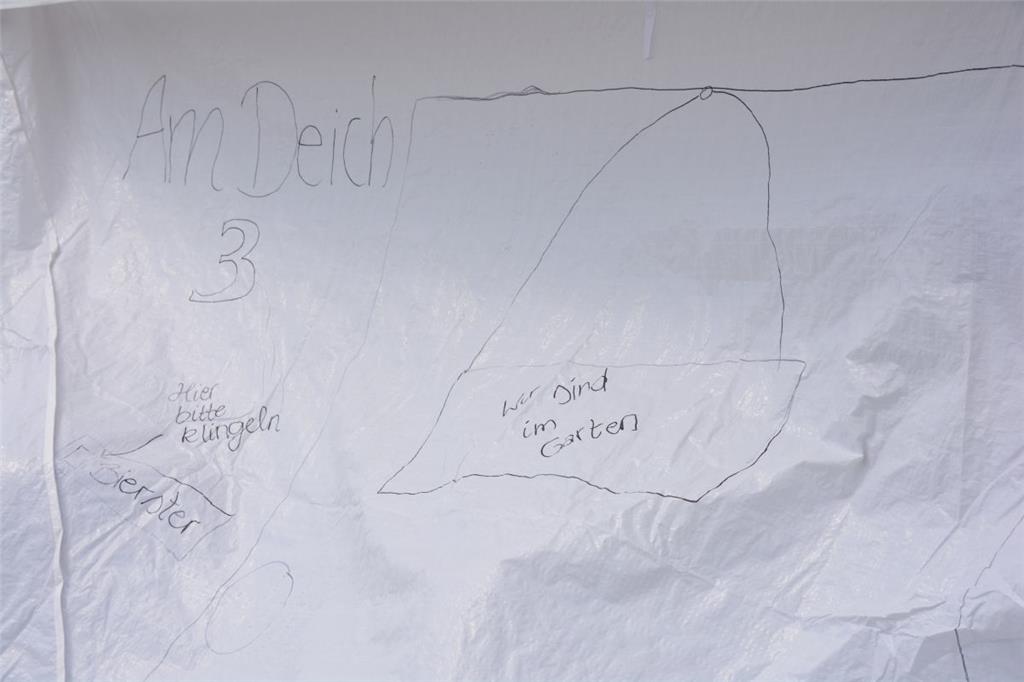 Am Deich
3
Hier
bitte
klingeln
Bierster
wir sind
im
Garten